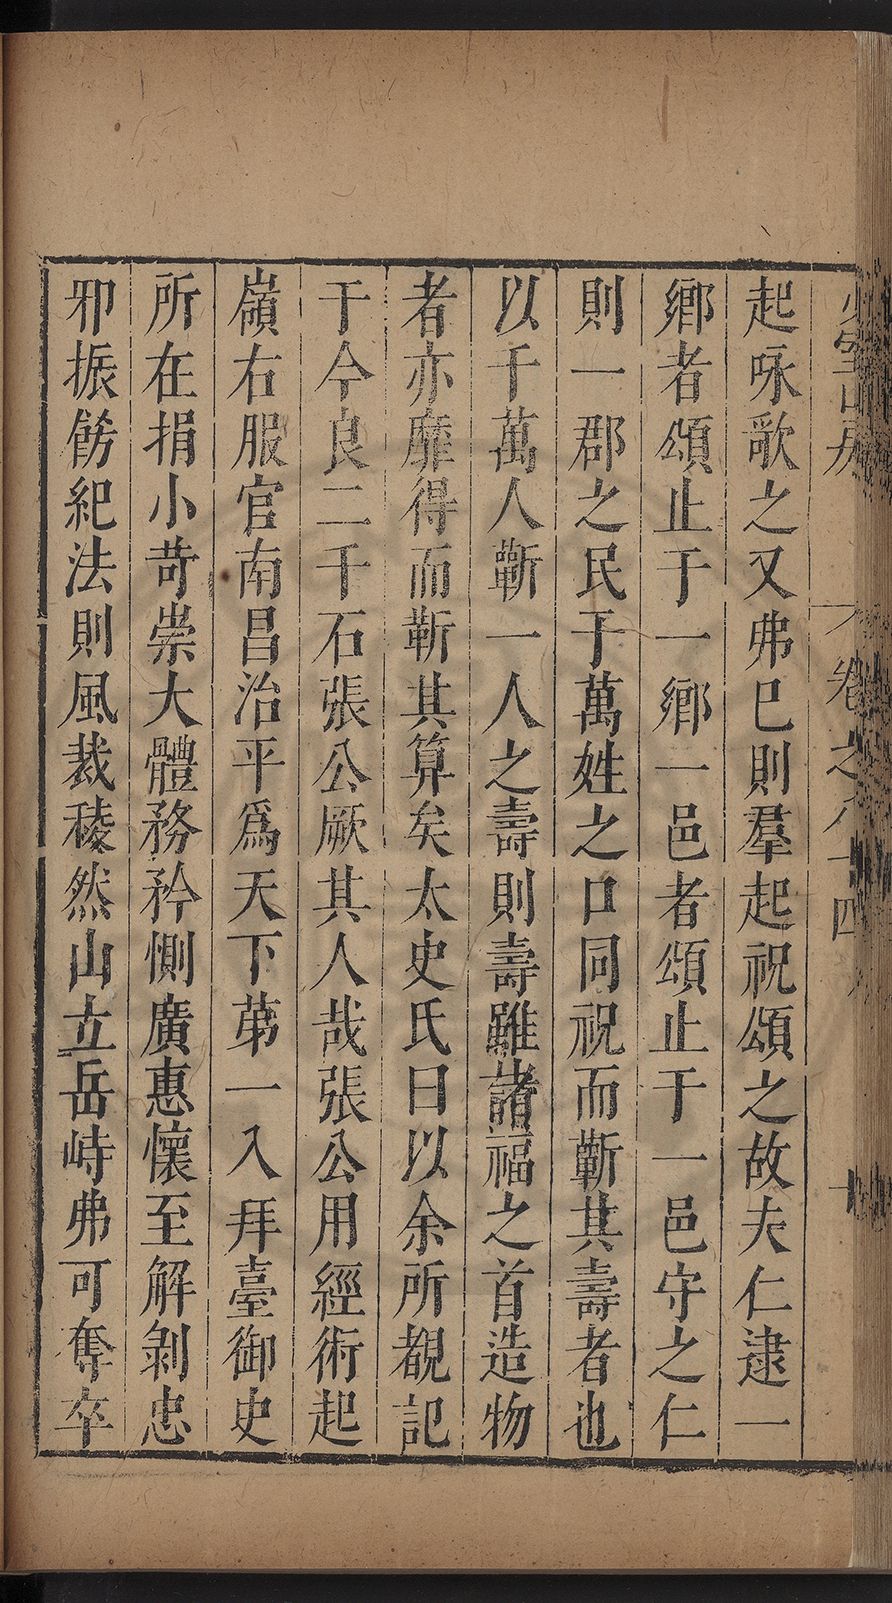 少室山房
卷之八十四
十
起咏歌之又弗已則羣起祝頌之故夫仁逮一
鄉者頌止于一鄉一邑者頌止于一邑守之仁
則一郡之民于萬姓之口同祝而蘄其壽者也
以千萬人蘄一人之壽則壽雖諸福之首造物
者亦靡得而靳其算矣太史氏曰以余所覩記
于今良二千石張公厥其人哉張公用經術起
嶺右服官南昌治平爲天下第一入拜臺御史
所在捐小苛崇大體務矜惻廣惠懷至解剝忠
邪振飭紀法則風裁稜然山立岳峙弗可奪卒